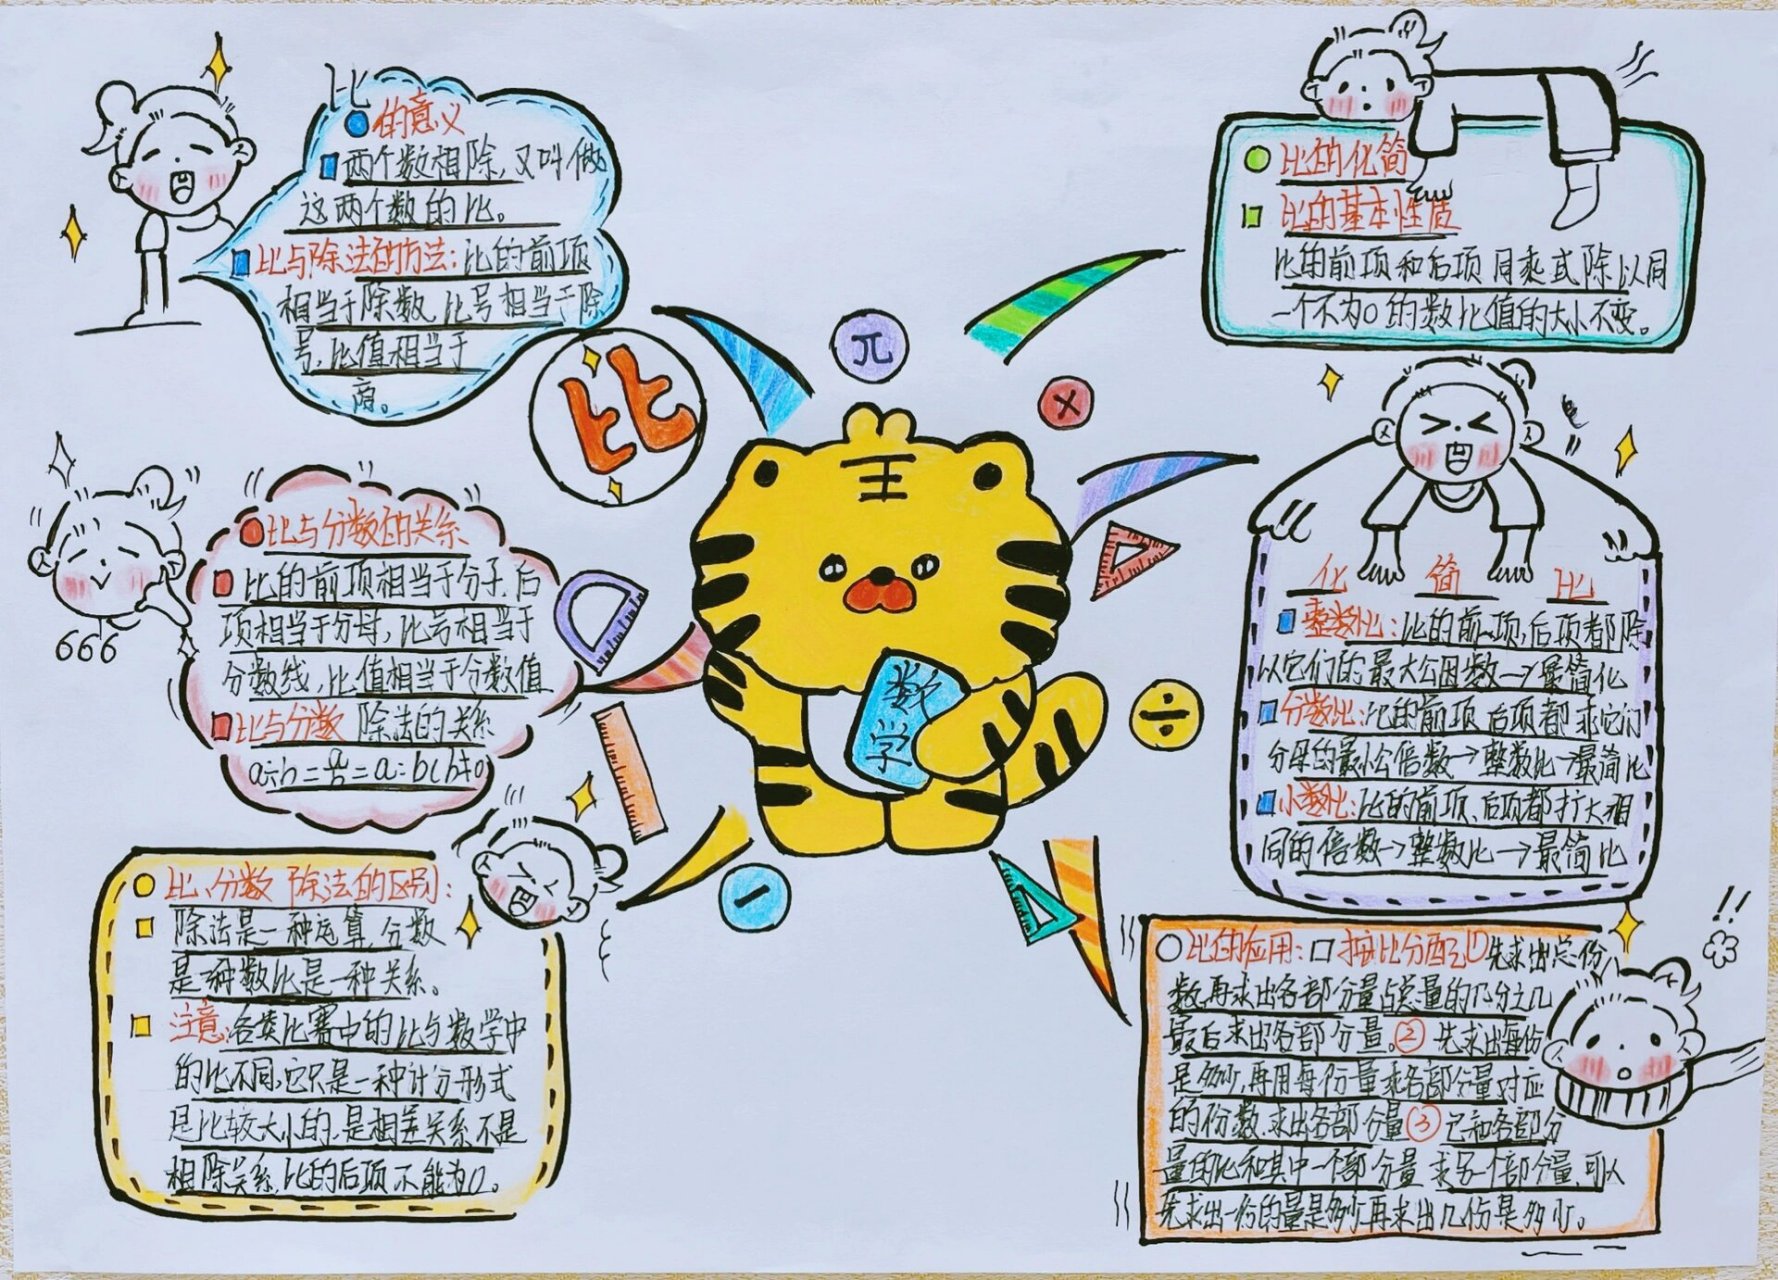 比
的意义
两个数相除,又叫做
这两个数的比。
比与除法的方法:比的前项
相当于除数,比号相当于除
号,比值相当于
商。
比
比与分数的关系
比的前项相当于分子,后
项相当于分母,比号相当于
分数线,比值相当于分数值
比与分数 除法的关系
a÷b=a/b=a:b(b≠0
666
比、分数 除法的区别:
除法是一种运算,分数
是一种数比是一种关系。
注意:各类比赛中的比与数学中
的比不同,它只是一种计分形式
是比较大小的,是相差关系,不是
相除关系,比的后项不能为0。
π
×
王
数
学
÷
-
比的化简
比的基本性质
比的前项和后项同乘或除以同
一个不为0的数比值的大小不变。
化 简 比
整数比:比的前项,后项都除
以它们的最大公因数→最简化
分数比:比的前项 后项都乘它们
分母的最小公倍数→整数比→最简比
小数比:比的前项、后项都扩大相
同的倍数→整数比→最简比
比的应用:按比分配:①先求出总份
数,再求出各部分量占总量的几分之几
最后求出各部分量。② 先求出每份
是多少,再用每份量乘各部分量对应
的份数,求出各部分量③已知各部分
量的比和其中一个部分量 求另一个部分量,可以
先求出一份的量是多少再求出几份是多少。
!!